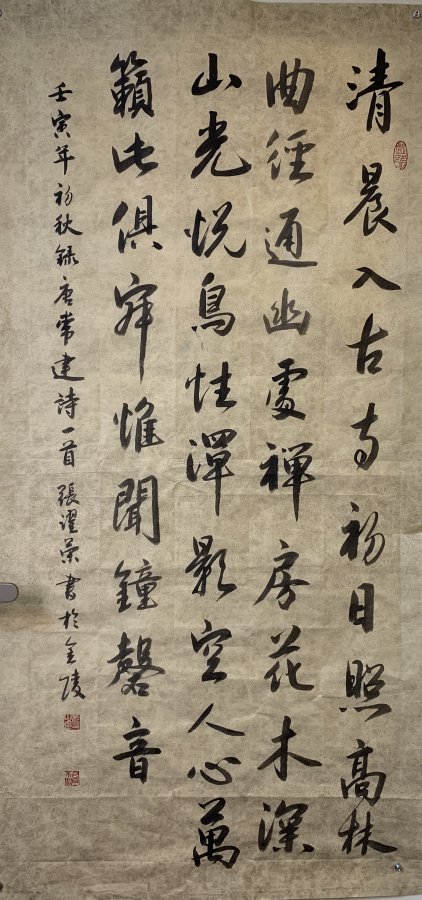 清晨入古寺初日照高林
曲徑通幽處禪房花木深
山光悦鳥性潭影空人心萬
籟此俱寂惟聞鐘磬音
壬寅年初秋録唐常建詩一首張濯榮書於金陵